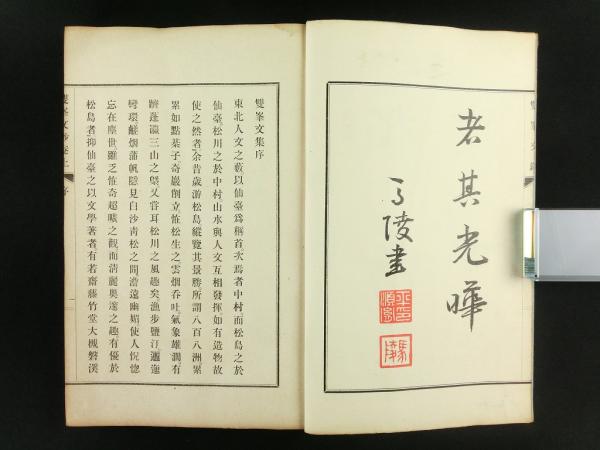 者其光曄
雙峯文集序
東北人文之藪以仙臺爲稱首次焉者中村而松島之於
仙臺松川之於中村山水與人文互相發揮如有造物故
使之然者余昔歲游松島縱覽其景勝所謂八百八洲累
累如點棊子奇巖削立怪松生之雲烟吞吐氣象雄濶有
躋蓬瀛三山之槩又甞耳松川之風趣矣漁步鹽汀邐迤
彎環鹺烟蒲帆隱見白沙靑松之間澹遠幽媚使人怳惚
忘在塵世雖乏恠奇超曠之觀而淸麗奥邃之趣有優於
松島者抑仙臺之以文學著者有若齋藤竹堂大槻磐溪